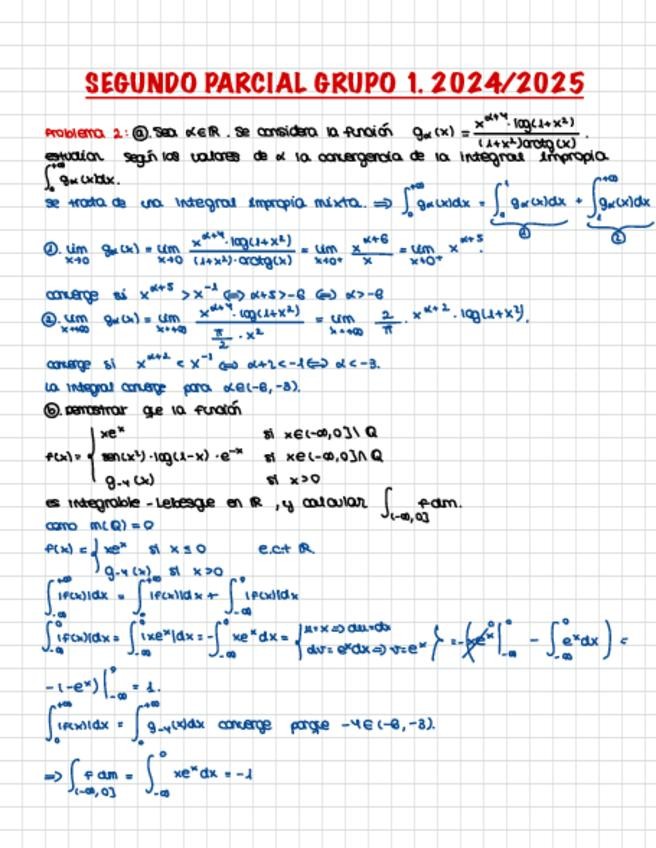 SEGUNDO PARCIAL GRUPO 1. 2024/2025
Problema 2: ⓐ. Sea α∈ℝ. Se considera la función gα(x) = x^(α+4)·log(1+x²) / (1+x²)arctg(x).
estudiar según los valores de α la convergencia de la integral impropia
∫₀^(+∞) gα(x)dx.
se trata de una integral impropia mixta. ⇒ ∫₀^(+∞) gα(x)dx = ∫₀^1 gα(x)dx + ∫₁^(+∞) gα(x)dx
① ②
①. lim x→0 gα(x) = lim x→0 x^(α+4)·log(1+x²) / (1+x²)·arctg(x) = lim x→0⁺ x^(α+6) / x = lim x→0⁺ x^(α+5).
converge si x^(α+5) > x^(-1) ⇔ α+5>-6 ⇔ α>-6
②. lim x→+∞ gα(x) = lim x→+∞ x^(α+4)·log(1+x²) / π/2 · x² = lim x→+∞ 2/π · x^(α+2) · log(1+x²).
converge si x^(α+2) < x^(-1) ⇔ α+2<-1 ⇔ α<-3.
La integral converge para α∈(-6,-3).
ⓑ. Demostrar que la función
xe^x si x∈(-∞,0]\ Q
f(x) = { sen(x²)·log(1-x)·e^(-x) si x∈(-∞,0]∩ Q
g₋₄(x) si x>0
es integrable-Lebesgue en ℝ, y calcular ∫(-∞,0] f dm.
como m(Q)=0
f(x) = { xe^x si x≤0 e.c.t ℝ
g₋₄(x) si x>0
∫_-∞^+∞ |f(x)|dx = ∫₀^+∞ |f(x)|dx + ∫_-∞^0 |f(x)|dx
∫_-∞^0 |f(x)|dx = ∫_-∞^0 |xe^x|dx = -∫_-∞^0 xe^x dx = { u=x ⇒ du=dx dv=e^x dx ⇒ v=e^x } = -(xe^x |_-∞^0 - ∫_-∞^0 e^x dx) =
-(-e^x)|_-∞^0 = 1.
∫₀^+∞ |f(x)|dx = ∫₀^+∞ g₋₄(x)dx converge porque -4∈(-6,-3).
⇒ ∫(-∞,0] f dm = ∫_-∞^0 xe^x dx = -1